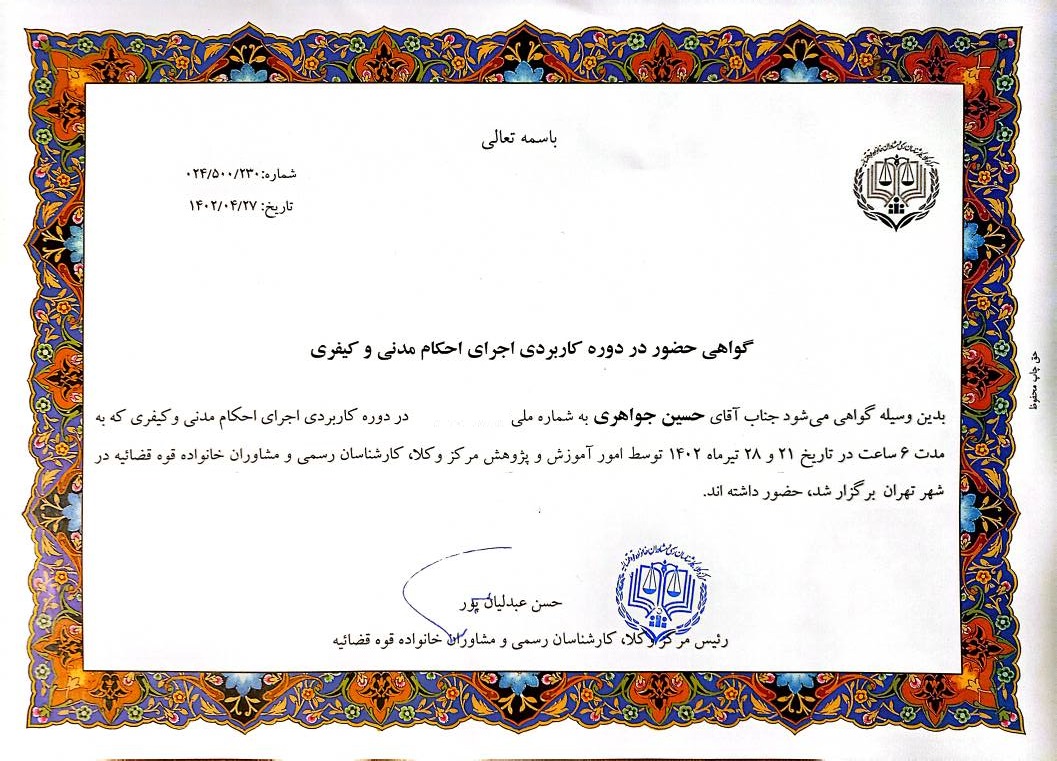 باسمه تعالی
شماره: ۰۲۴/۵۰۰/۲۳۰
تاریخ: ۱۴۰۲/۰۴/۲۷
گواهی حضور در دوره کاربردی اجرای احکام مدنی و کیفری
بدین وسیله گواهی می‌شود جناب آقای حسین جواهری به شماره ملی در دوره کاربردی اجرای احکام مدنی و کیفری که به
مدت ۶ ساعت در تاریخ ۲۱ و ۲۸ تیرماه ۱۴۰۲ توسط امور آموزش و پژوهش مرکز وکلا، کارشناسان رسمی و مشاوران خانواده قوه قضائیه در
شهر تهران برگزار شد، حضور داشته اند.
حسن عبدلیان پور
رئیس مرکز وکلا، کارشناسان رسمی و مشاوران خانواده قوه قضائیه
حق چاپ محفوظ